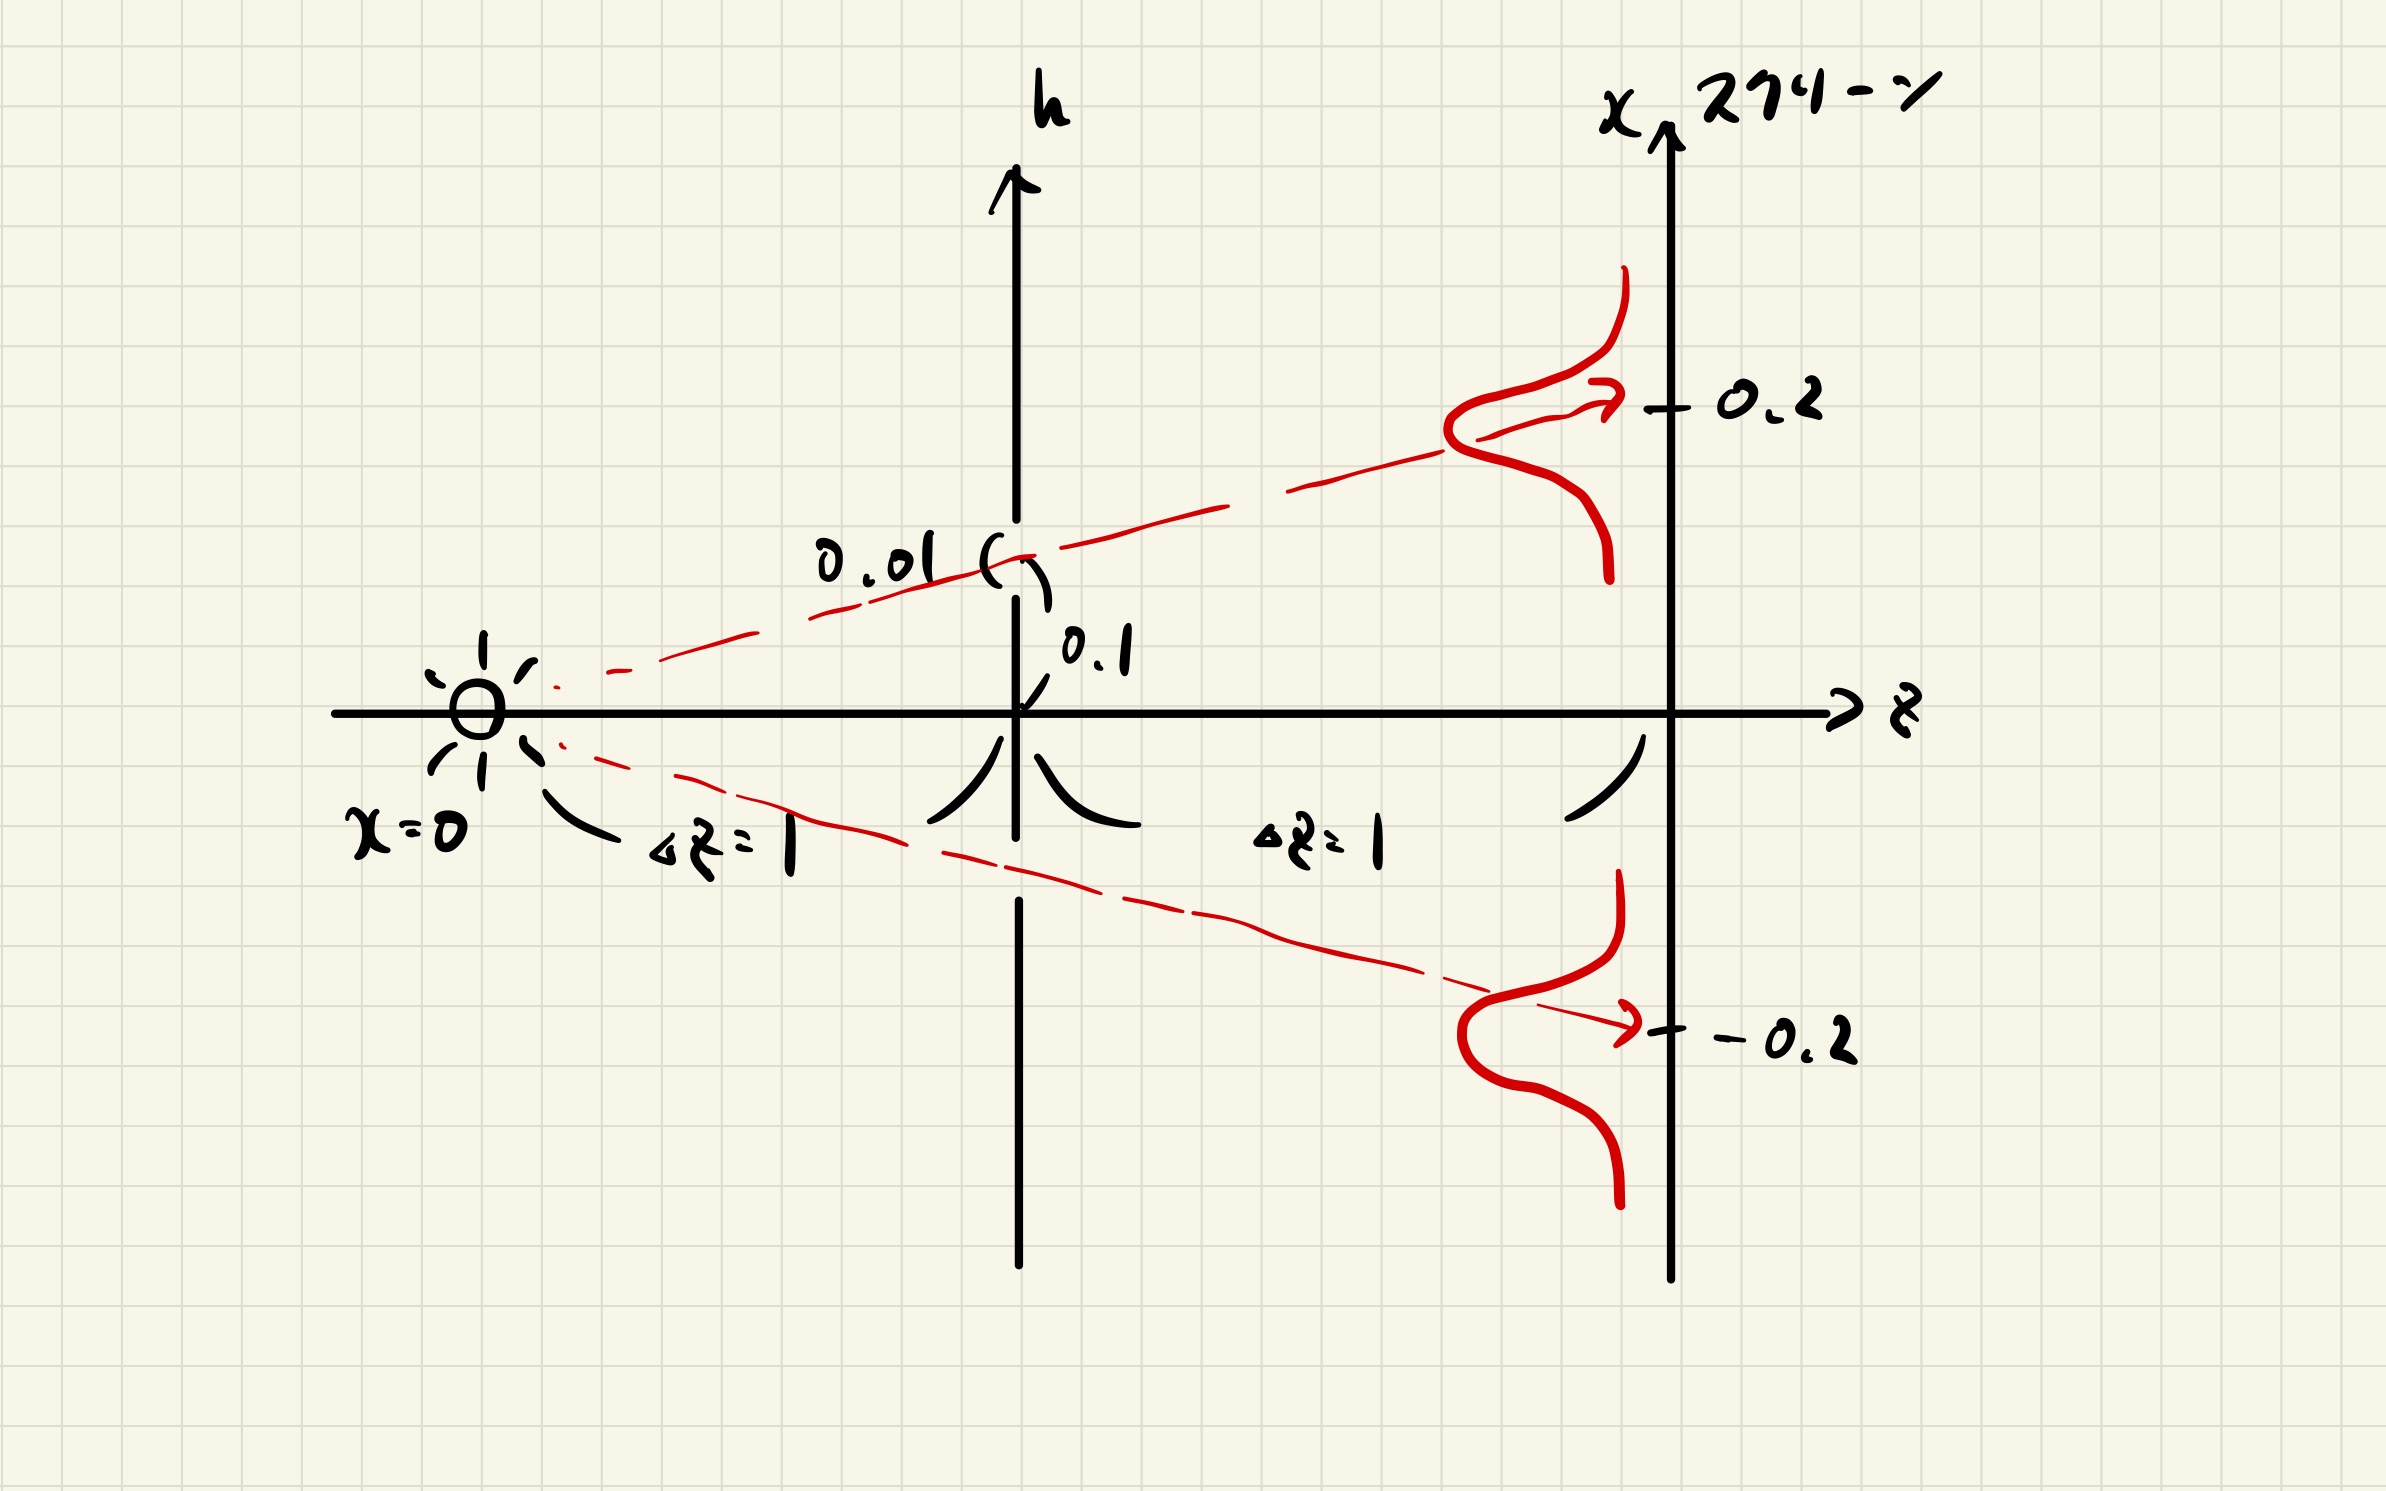 h
x スクリーン
0.2
0.01
0.1
z
x=0
Δz=1
Δz=1
-0.2